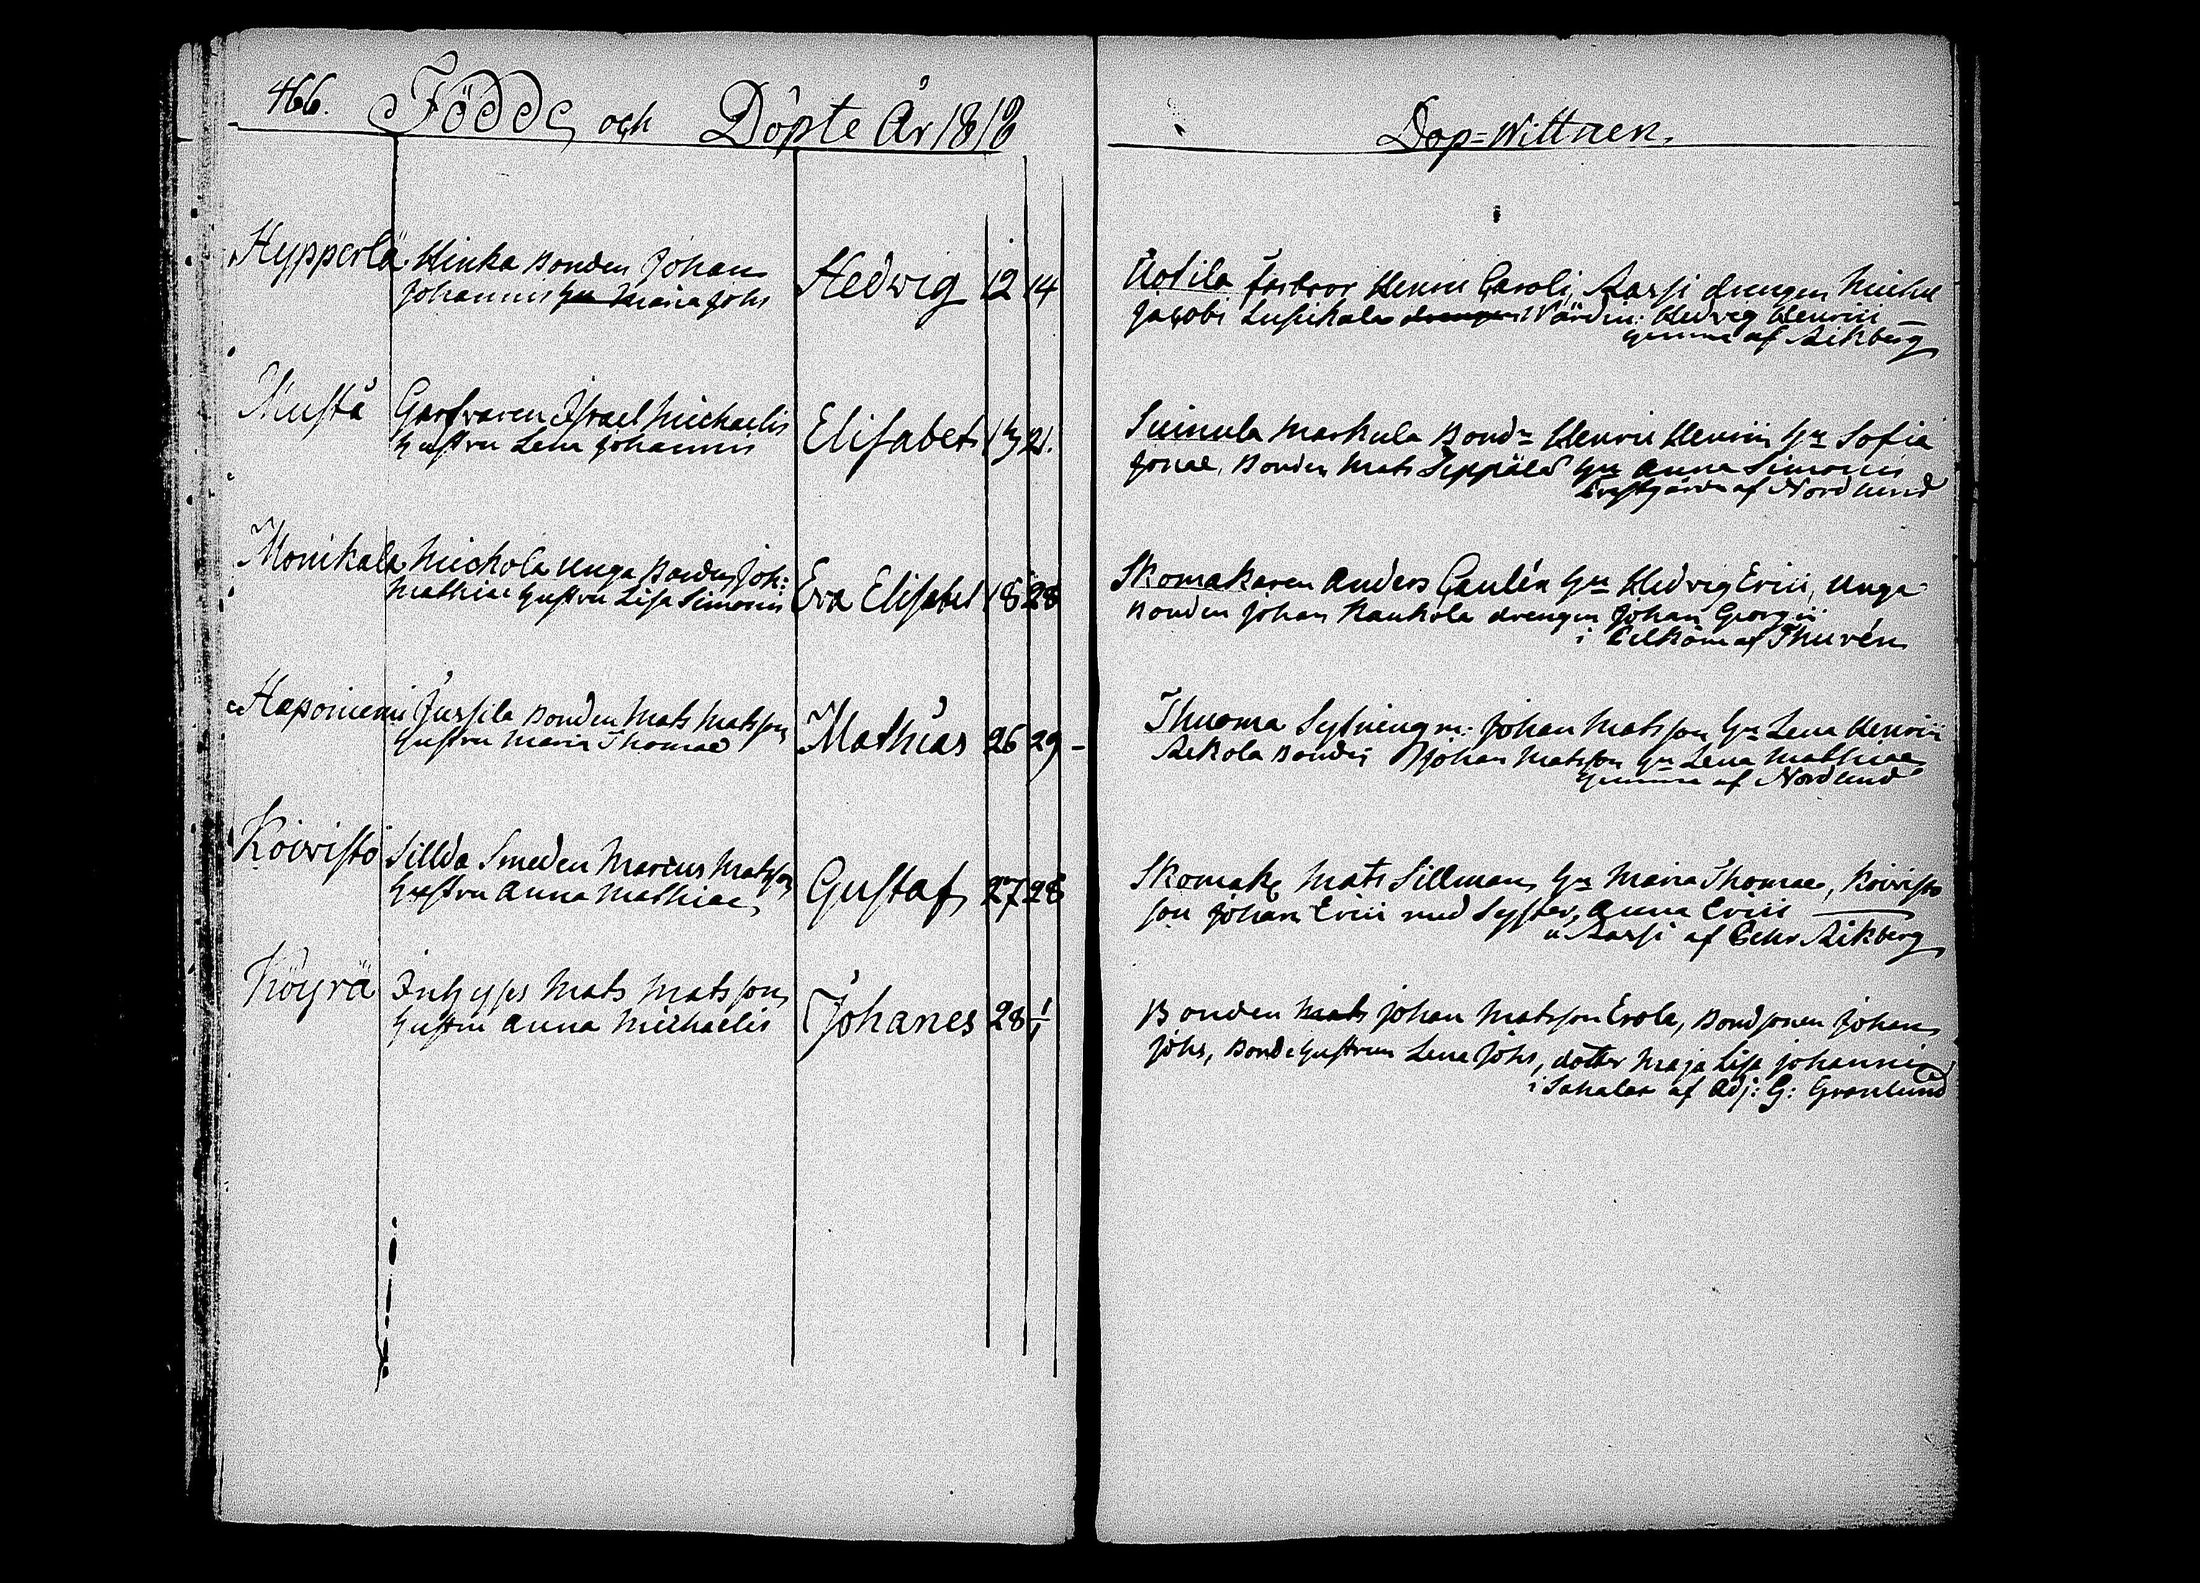 466. Födde och Döpte År 1818
Dop=Wittnen.
Hypperlä Hinka Bonden Johan Hedwig 12 14
Johannis Hu Maria Johs
Uotila farbror Henric Caroli, Aarsi drengen Michel
Jacobi Lusikala drengen Värdin: Hedvig Henrici
hemma af Aikberg
Mustà Garfvaren Israel Michaelis Elisabet 13 21.
hustru Lena Johannis
Suinula Markula Bond= Henric Henrici Hu Sofia
Jonae, Bonden Mats Seppälä Hu Anna Simonis
af Nordlund
Monikala Mickola unga Bonden Joh: Eva Elisabet 18 28
Mathiae hustru Lisa Simonis
Skomakaren Anders Gaulén Hu Hedvig Erici, Unga
Bonden Johan Kaukola drengen Johan Georgii
i af Thurén
Haponiemi Jussila Bonden Mats Matsson Mathias 26 29 -
hustru Maria Thomae
Thuoma Sytningm: Johan Matsson Hu Lena Henrici
Rekola Bonden Johan Matsson Hu Lena Mathiae
hemma af Nordlund
Koivisto Sillda Smeden Marcus Matsson Gustaf 27 28
hustru Anna Mathiae
Skomak Mats Sillman, Hu Maria Thomae, Koivisto
son Johan Erici med Syster, Anna Erici
u Aarsi af Aikberg
Köyrä Inhyses Mats Matsson Johanes 28 1/1
hustru Anna Michaelis
Bonden Mats Johan Matsson Erola, Bondsonen Johan
Johs, Bondehustrun Lena Johs, dotter Maja Lisa Johannis
i Sahalax af Adj: G: Gronlund